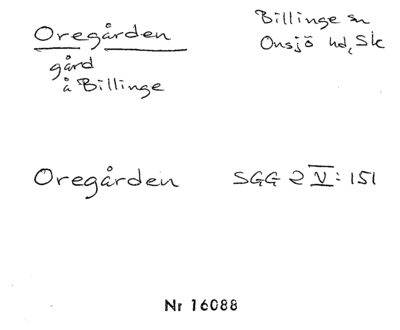 Oregården
gård
å Billinge
Billinge sn
Onsjö hd, Sk
Oregården
SGG 2 V: 151
Nr 16088